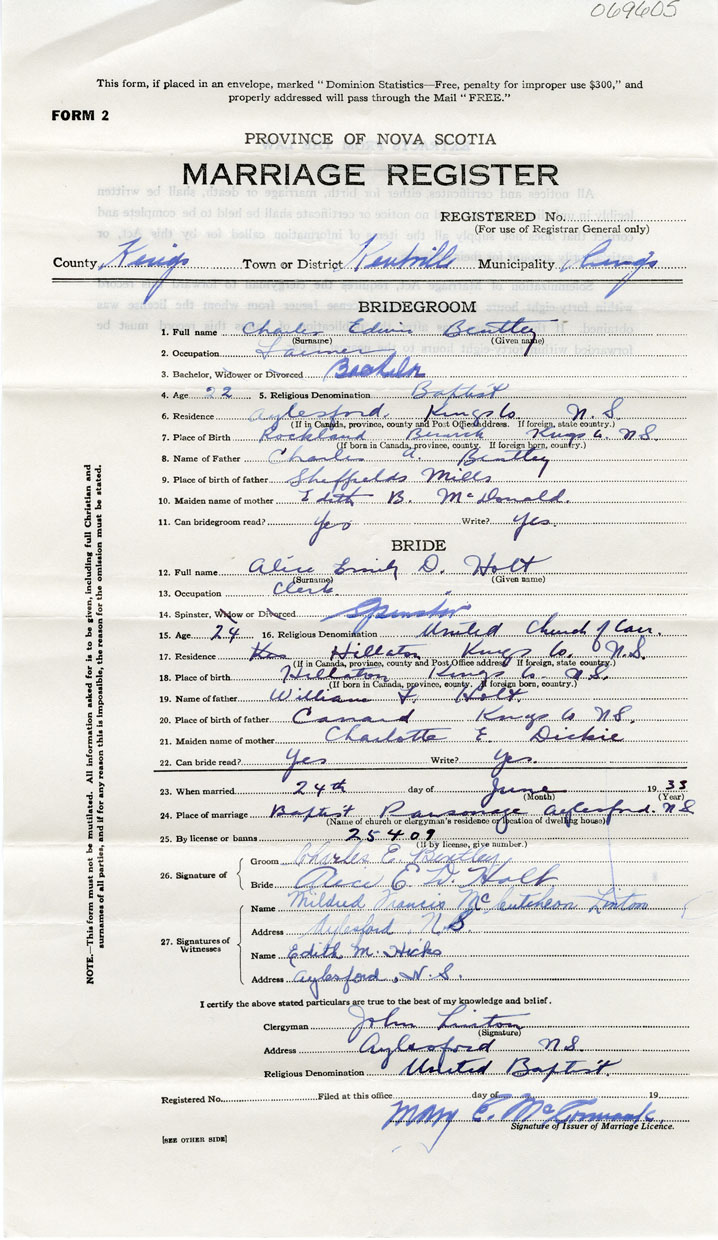 069605
This form, if placed in an envelope, marked "Dominion Statistics—Free, penalty for improper use $300," and
properly addressed will pass through the Mail "FREE."
FORM 2
PROVINCE OF NOVA SCOTIA
MARRIAGE REGISTER
REGISTERED No.
(For use of Registrar General only)
County Kings Town or District Kentville Municipality Kings
BRIDEGROOM
1. Full name Charles Edwin Bentley
(Surname) (Given name)
2. Occupation Farmer
3. Bachelor, Widower or Divorced Bachelor
4. Age 22 5. Religious Denomination Baptist
6. Residence Aylesford, Kings Co. N. S.
(If in Canada, province, county and Post Office address. If foreign, state country.)
7. Place of Birth Rockland Kings Co. N.S.
(If born in Canada, province, county. If foreign born, country.)
8. Name of Father Charles A. Bentley
9. Place of birth of father Sheffields Mills
10. Maiden name of mother Edith B. McDonald.
11. Can bridegroom read? Yes Write? Yes.
BRIDE
12. Full name Alice Emily D. Holt
(Surname) (Given name)
13. Occupation Clerk
14. Spinster, Widow or Divorced Spinster
15. Age 24 16. Religious Denomination United Church of Can.
17. Residence Hillaton Kings Co. N.S.
(If in Canada, province, county and Post Office address. If foreign, state country.)
18. Place of birth Hillaton Kings Co. N.S.
(If born in Canada, province, county. If foreign born, country.)
19. Name of father William Holt.
20. Place of birth of father Canard Kings Co NS.
21. Maiden name of mother Charlotte E. Dickie
22. Can bride read? Yes Write? Yes.
23. When married 24th day of June 1933
(Month) (Year)
24. Place of marriage Baptist Parsonage Aylesford. N.S
(Name of church or clergyman's residence or location of dwelling house)
25. By license or banns 25409
(If by license, give number.)
26. Signature of
Groom Charles E. Bentley
Bride Alice E. D. Holt
27. Signatures of Witnesses
Name Mildred Francis McCutcheon Linton
Address Aylesford, N.S
Name Edith M. Hicks
Address Aylesford, N.S.
I certify the above stated particulars are true to the best of my knowledge and belief.
Clergyman John Linton
(Signature)
Address Aylesford N.S.
Religious Denomination United Baptist.
Registered No. Filed at this office day of 19
Mary E.
Signature of Issuer of Marriage Licence.
[SEE OTHER SIDE]
NOTE.—This form must not be mutilated. All information asked for is to be given, including full Christian and
surnames of all parties, and if for any reason this is impossible, the reason for the omission must be stated.